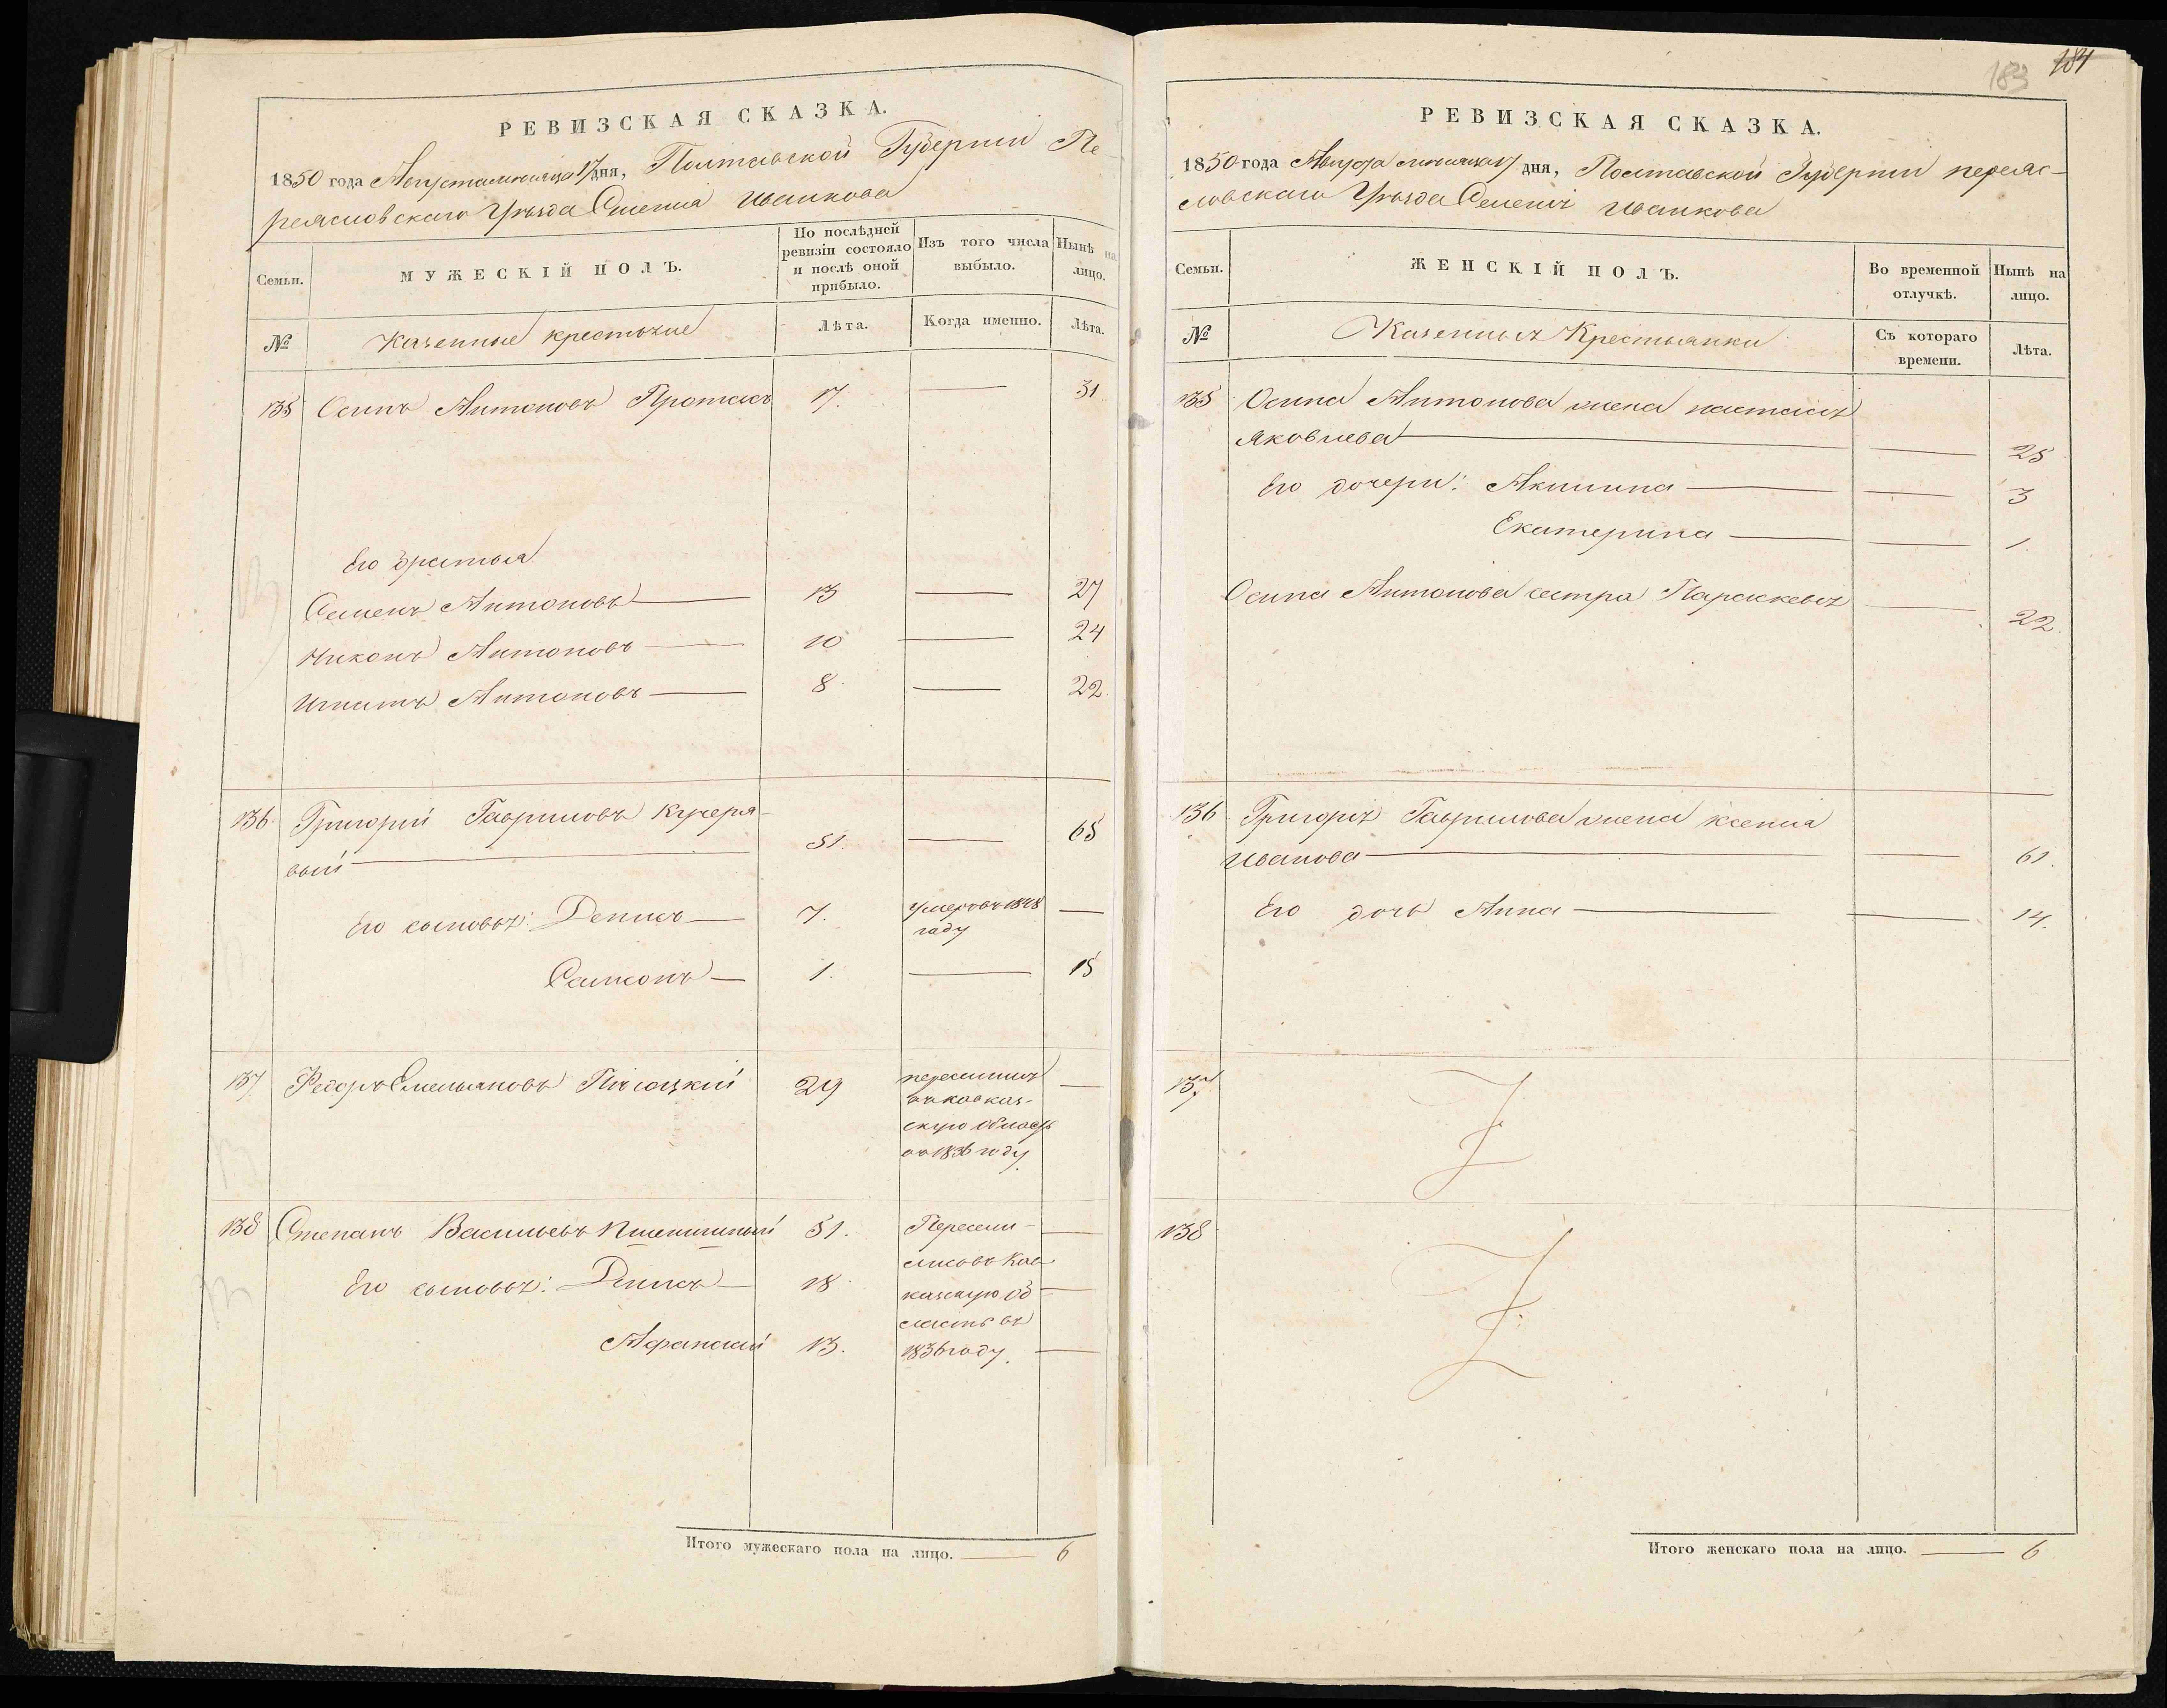 РЕВИЗСКАЯ СКАЗКА.
1850 года Августа месяца 17 дня, Полтавской Губернии Пе-
реясловскаго Уѣзда Селенія Иванкова
Семьи.
МУЖЕСКІЙ ПОЛЪ.
По послѣдней ревизіи состояло и послѣ оной прибыло.
Изъ того числа выбыло.
Нынѣ на лицо.
№
Казенные крестьяне
Лѣта.
Когда именно.
Лѣта.
135 Осипъ Антоновъ Протасъ 17. — 31
Его братья
Семенъ Антоновъ — 13 — 27
Никонъ Антоновъ — 10 — 24
Игнатъ Антоновъ — 8 — 22.
136. Григорій Гавриловъ Кучеря-
вый — 51. — 65
Его сыновья: Денисъ — 7. умеръ въ 1848 —
году
Самсонъ — 1. — 15
137 Федоръ Емельяновъ 29 переселился —
въ кавказ-
скую область
въ 1836 году
138 Степанъ Васильевъ Пшеничный 51. Пересели- —
лись въ Кав-
Его сыновья: Денисъ — 18 казскую об- —
ласть въ
Афанасій 13. 1836 году. —
Итого мужескаго пола на лицо. — 6
183 184
РЕВИЗСКАЯ СКАЗКА.
1850 года Августа месяца 17 дня, Полтавской Губерніи переяс-
ловскаго Уѣзда Селенія Иванкова
Семьи.
ЖЕНСКІЙ ПОЛЪ.
Во временной отлучкѣ.
Нынѣ на лицо.
№
Казенныя Крестьянки
Съ котораго времени.
Лѣта.
135 Осипа Антонова жена настасія
Яковлева — — 25
Его дочери: Акилина — — 3
Екатерина — — 1.
Осипа Антонова сестра Параскевія — 22.
136 Григорія Гаврилова жена ксенія
Иванова — — 61.
Его дочь Анна — — 14.
137
138
Итого женскаго пола на лицо. — 6